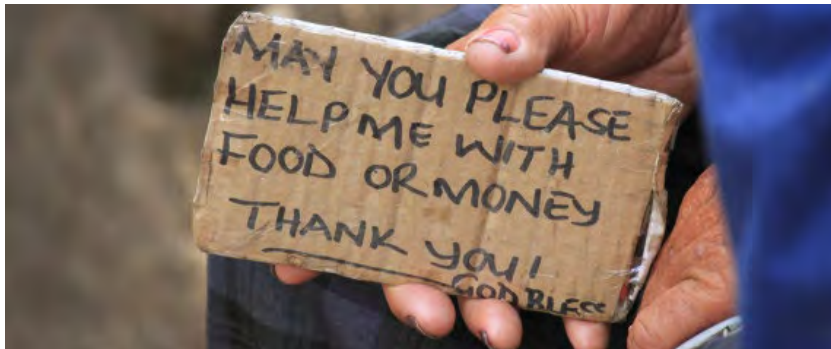 MAY YOU PLEASE
HELP ME WITH
FOOD OR MONEY
THANK YOU!
GOD BLESS